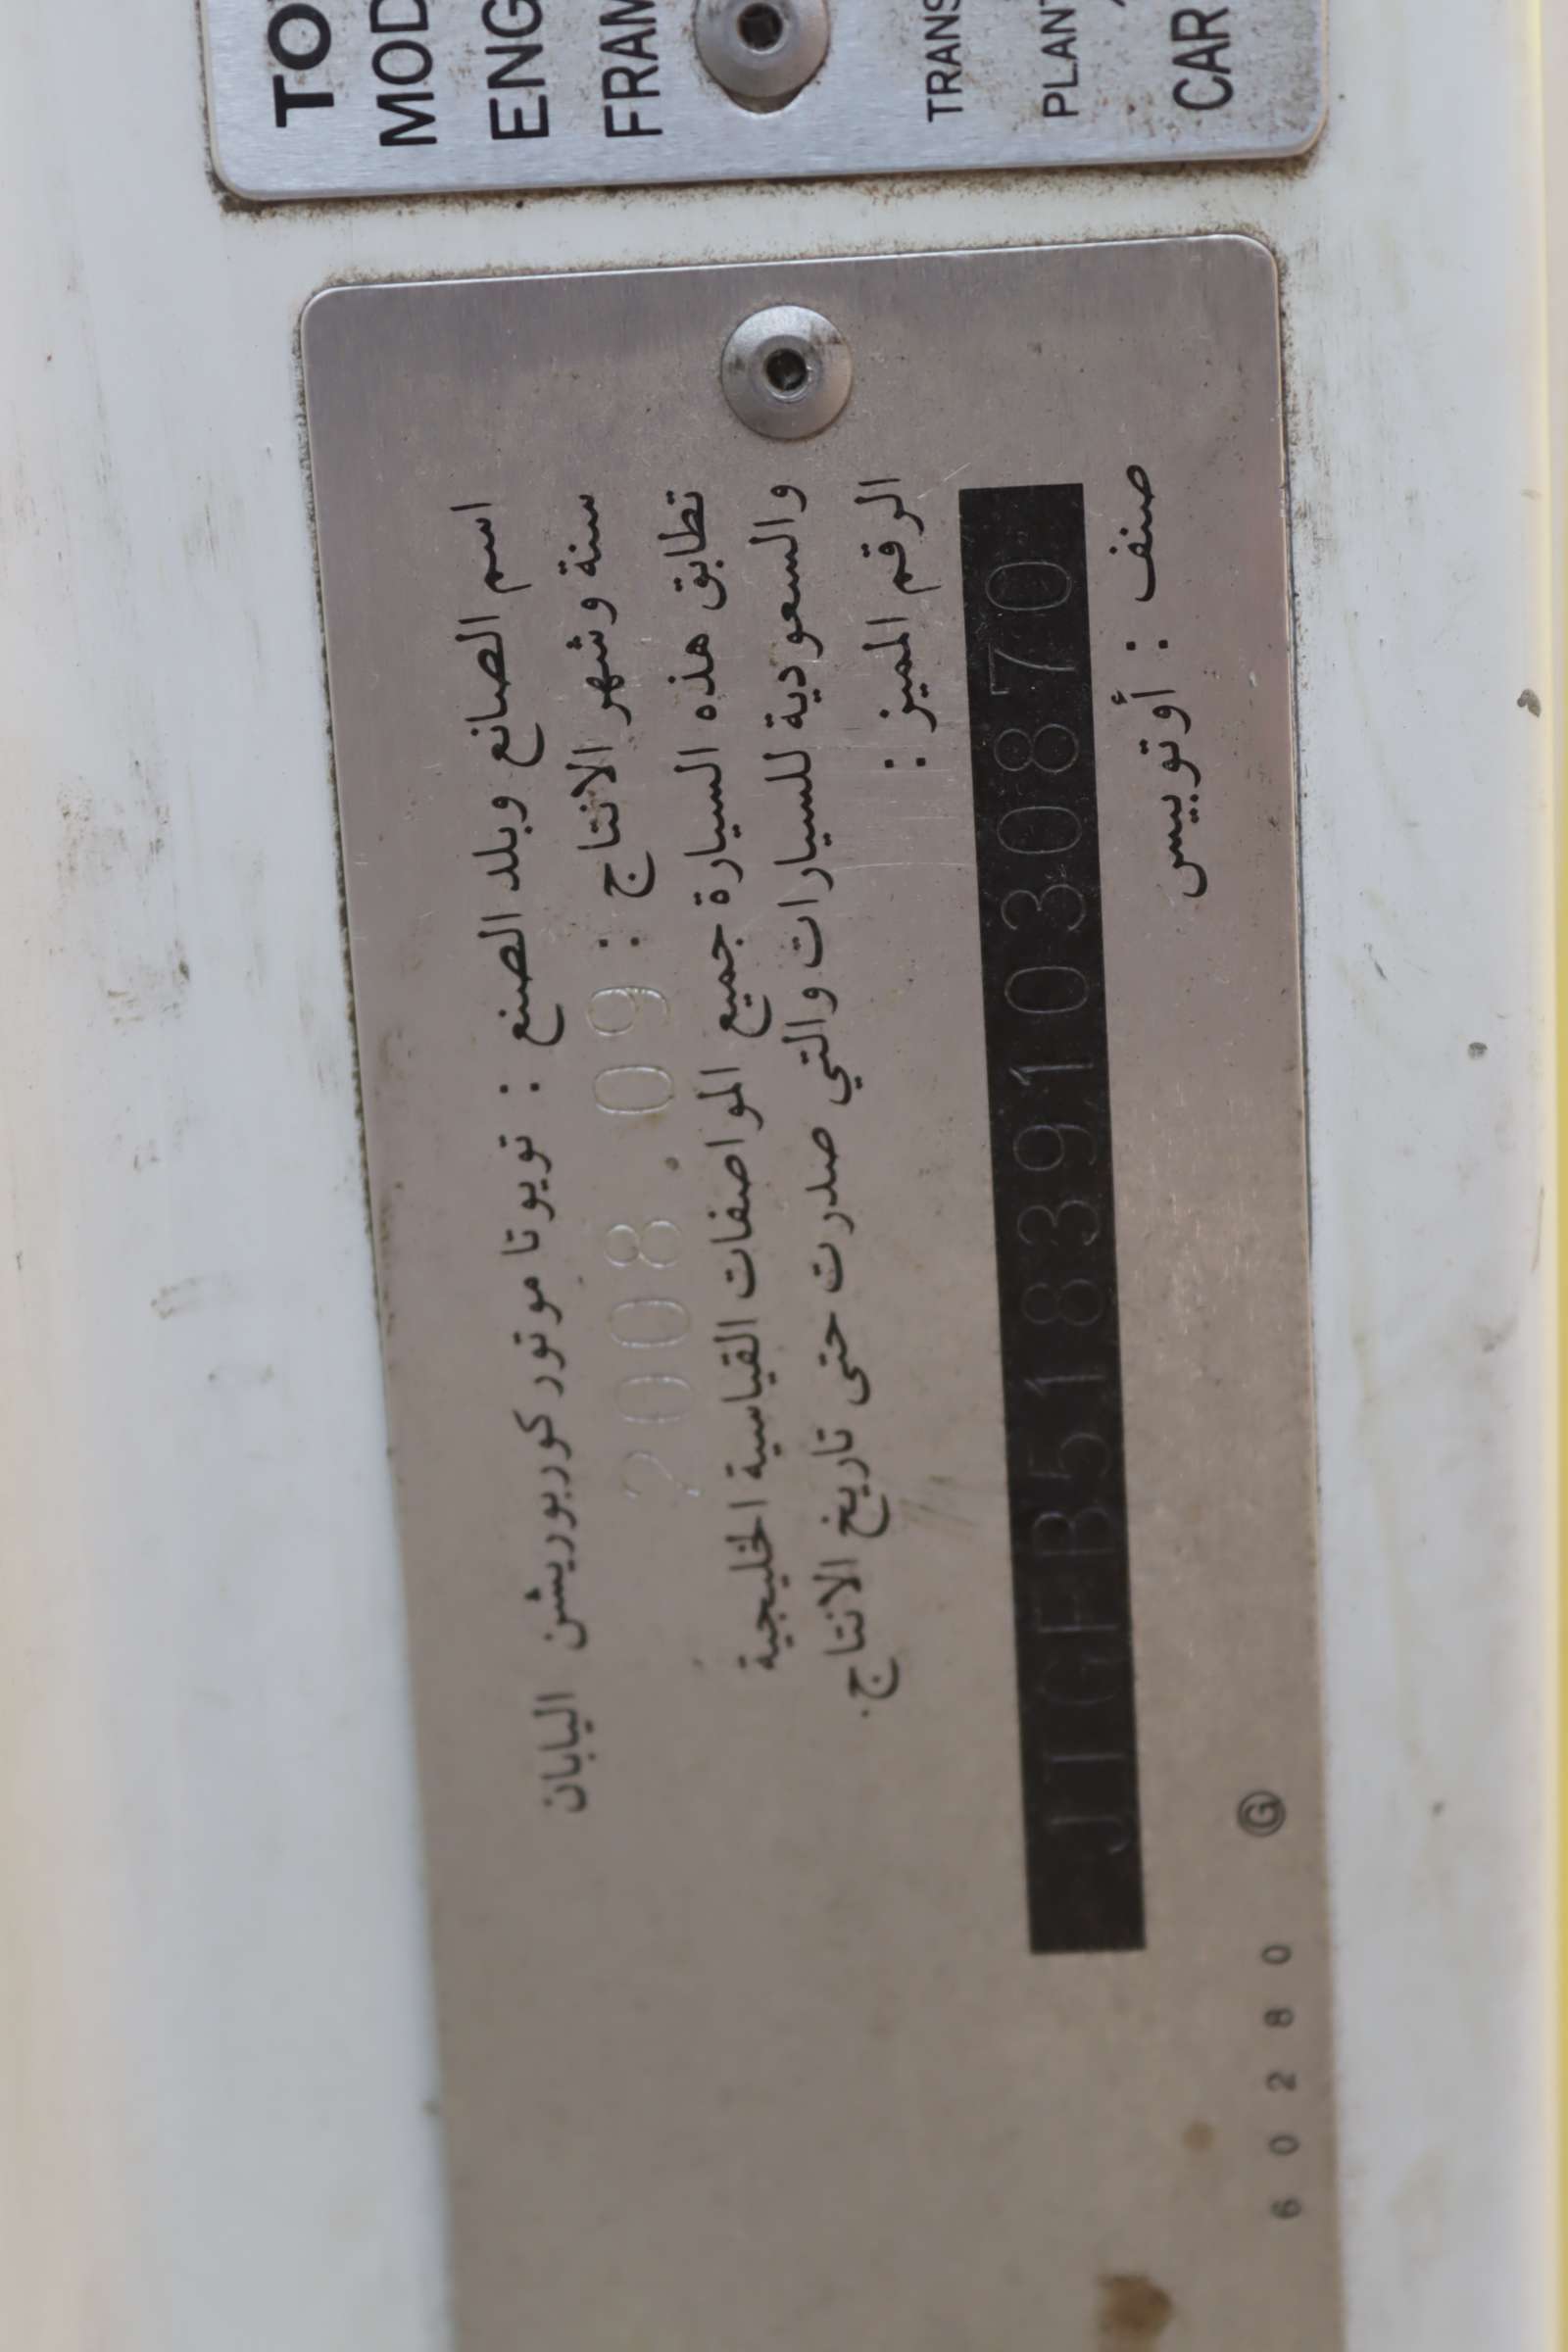 TO
MOD
ENG
FRAM
TRANS
PLANT
CAR
اسم الصانع وبلد الصنع : تويوتا موتور كوربوريشن اليابان
سنة وشهر الانتاج : 2008.09
تطابق هذه السيارة جميع المواصفات القياسية الخليجية
والسعودية للسيارات والتي صدرت حتى تاريخ الانتاج.
الرقم المميز :
JTGFB518391030870
صنف : أوتوبيس
60280 Ⓖ